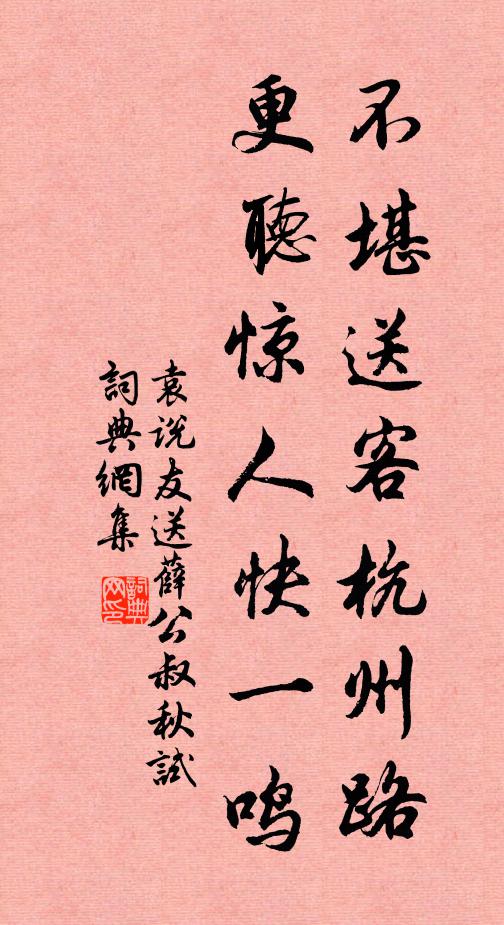 不堪送客杭州路
更聴惊人快一鸣
袁说友送薛公叔秋試
詞典網集
詞典网印